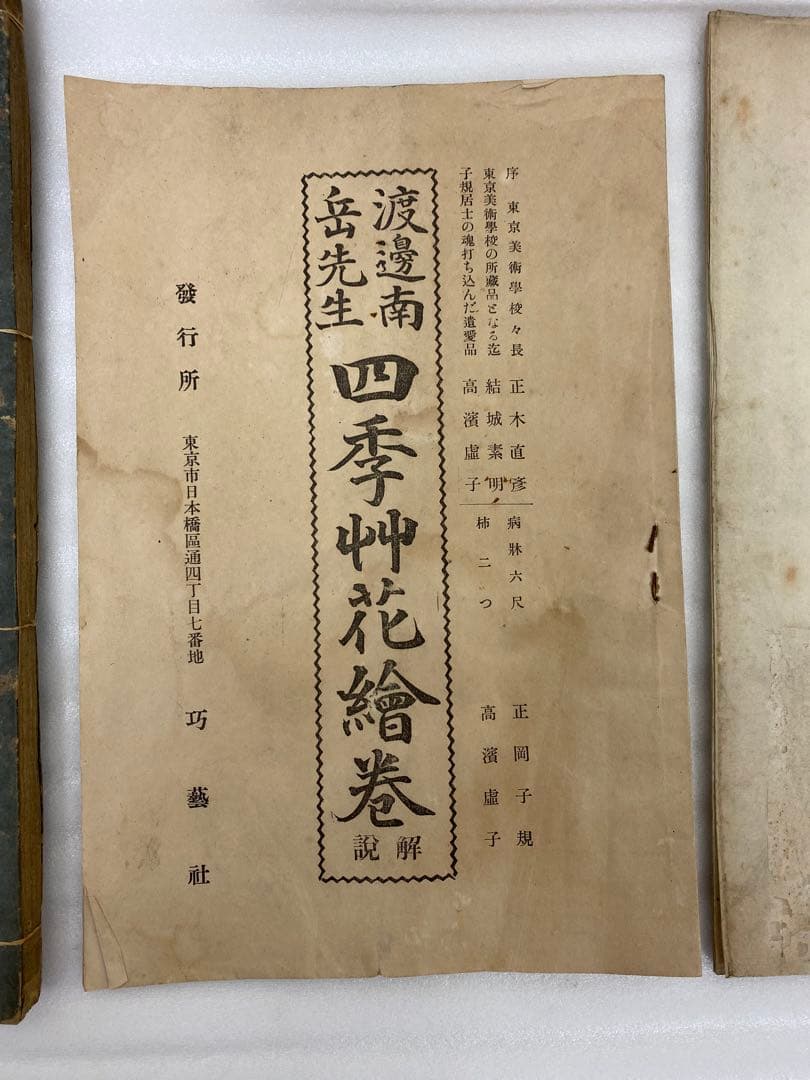 序 東京美術學校々長 正木直彥
東京美術學校の所藏品となる迄 結城素明
子規居士の魂打ち込んだ遺愛品 高濱虛子
病牀六尺 正岡子規
柿二つ 高濱虛子
渡邊南岳先生 四季艸花繪卷 解說
發行所 東京市日本橋區通四丁目七番地 巧藝社